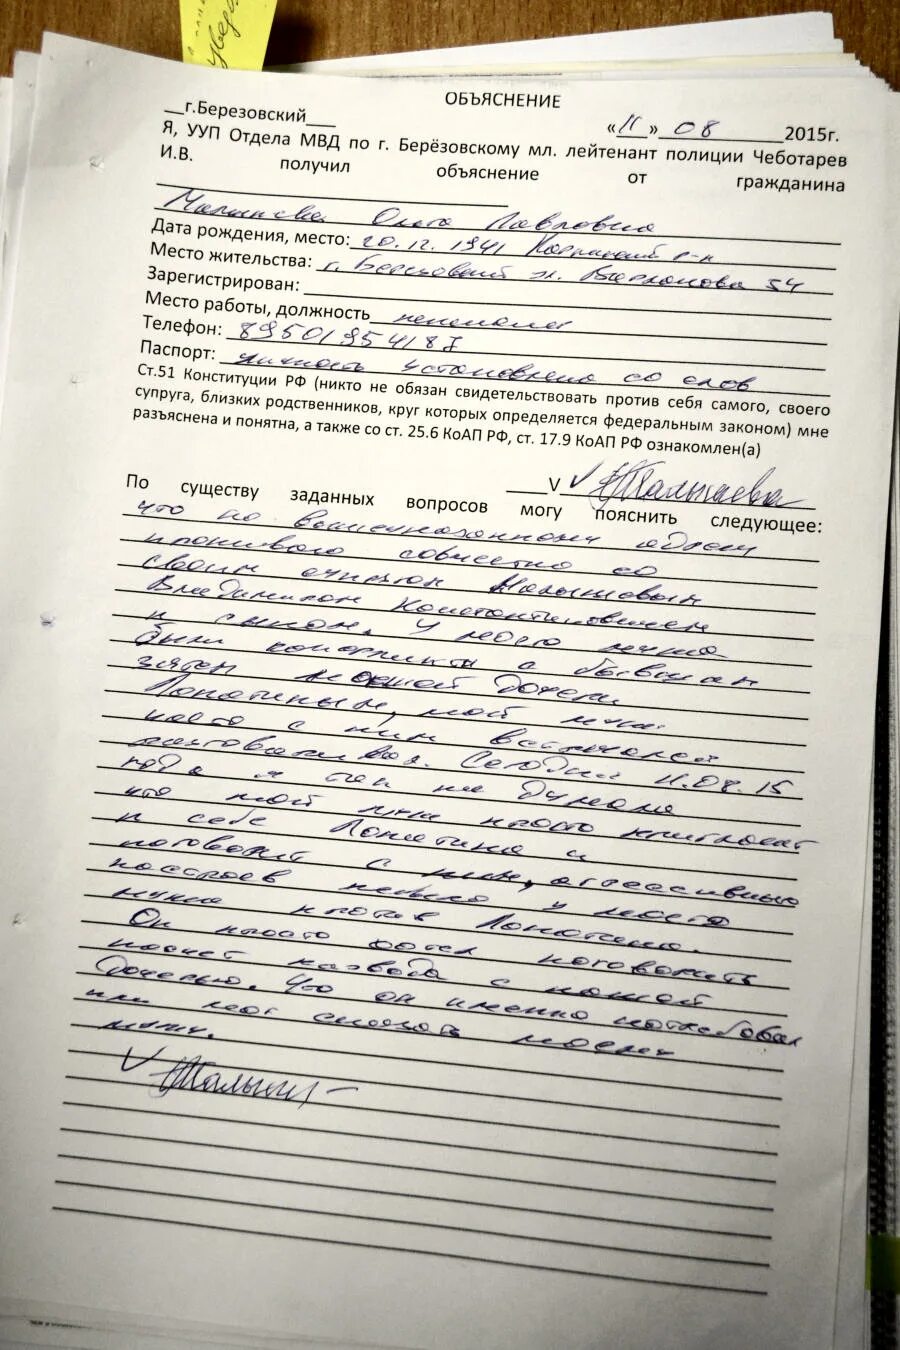 ОБЪЯСНЕНИЕ
__г.Березовский___
«11» 08 2015г.
Я, УУП Отдела МВД по г. Берёзовскому мл. лейтенант полиции Чеботарев
И.В. получил объяснение от гражданина
Ольга Павловна
Дата рождения, место: 20.12.1941 р-н
Место жительства: г. Березовский ул. 54
Зарегистрирован:
Место работы, должность
Телефон: 89501954187
Паспорт: личность установлена со слов
Ст.51 Конституции РФ (никто не обязан свидетельствовать против себя самого, своего
супруга, близких родственников, круг которых определяется федеральным законом) мне
разъяснена и понятна, а также со ст. 25.6 КоАП РФ, ст. 17.9 КоАП РФ ознакомлен(а)
V
По существу заданных вопросов могу пояснить следующее:
что по вышеуказанному адресу
проживаю совместно со
своим
Владимиром Константиновичем
и сыном. У моего мужа
были конфликты с бывшим
зятем дочери
Лопатиным, мой муж
часто с ним встречался
разговаривал. Сегодня 11.08.15
года я так не думала
что мой муж просто пригласит
к себе Лопатина и
поговорит с ним, агрессивного
настроев не было у моего
мужа против Лопатина.
Он просто хотел поговорить
насчет развода с нашей
дочерью. Что он именно потребовал
или мог сказать моему
мужу.